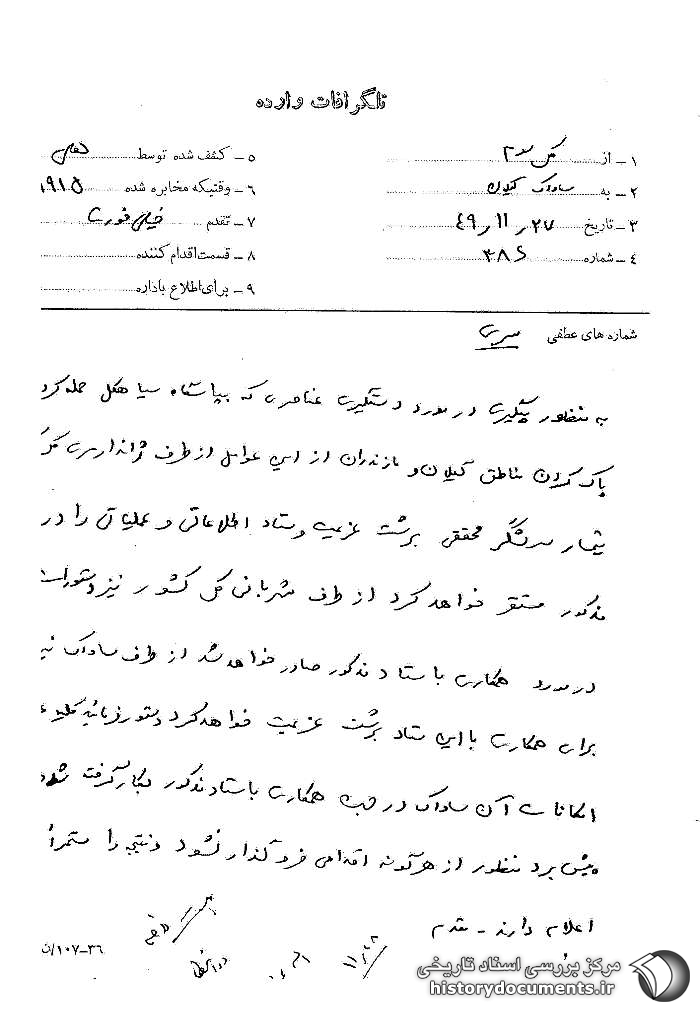 تلگرافات وارده
۱ـ از کل سوم
۲ـ به ساواک گیلان
۳ـ تاریخ ۲۷ر۱۱ر۴۹
۴ـ شماره ۳۸۶
۵ـ کشف شده توسط
۶ـ وقتیکه مخابره شده ۱۹۱۵
۷ـ تقدم خیلی فوری
۸ـ قسمت اقدام کننده
۹ـ برای اطلاع باداره
شماره های عطفی سری
به منظور پیگیری در مورد دستگیری عناصری که بپاسگاه سیاهکل حمله کرد
پاک کردن مناطق گیلان و مازندران از این عوامل از طرف ژاندارمری کل
تیمسار سرلشگر محققی برشت عزیمت و ستاد اطلاعاتی و عملیاتی را در
مذکور مستقر خواهد کرد از طرف شهربانی کل کشور نیز دستورات
در مورد همکاری با ستاد مذکور صادر خواهد شد از طرف ساواک نیز
برای همکاری با این ستاد برشت عزیمت خواهد کرد دستور فرمائید کلیه
امکانات آن ساواک در جهت همکاری با ستاد مذکور بکار گرفته شود
پیش برد منظور از هرگونه اقدامی فروگذار نشود و نتیجه را مستمراً
اعلام دارند ـ مقدم
۱۱/۲۸
۳۶-۱۰۷/ن
مرکز بررسی اسناد تاریخی
historydocuments.ir